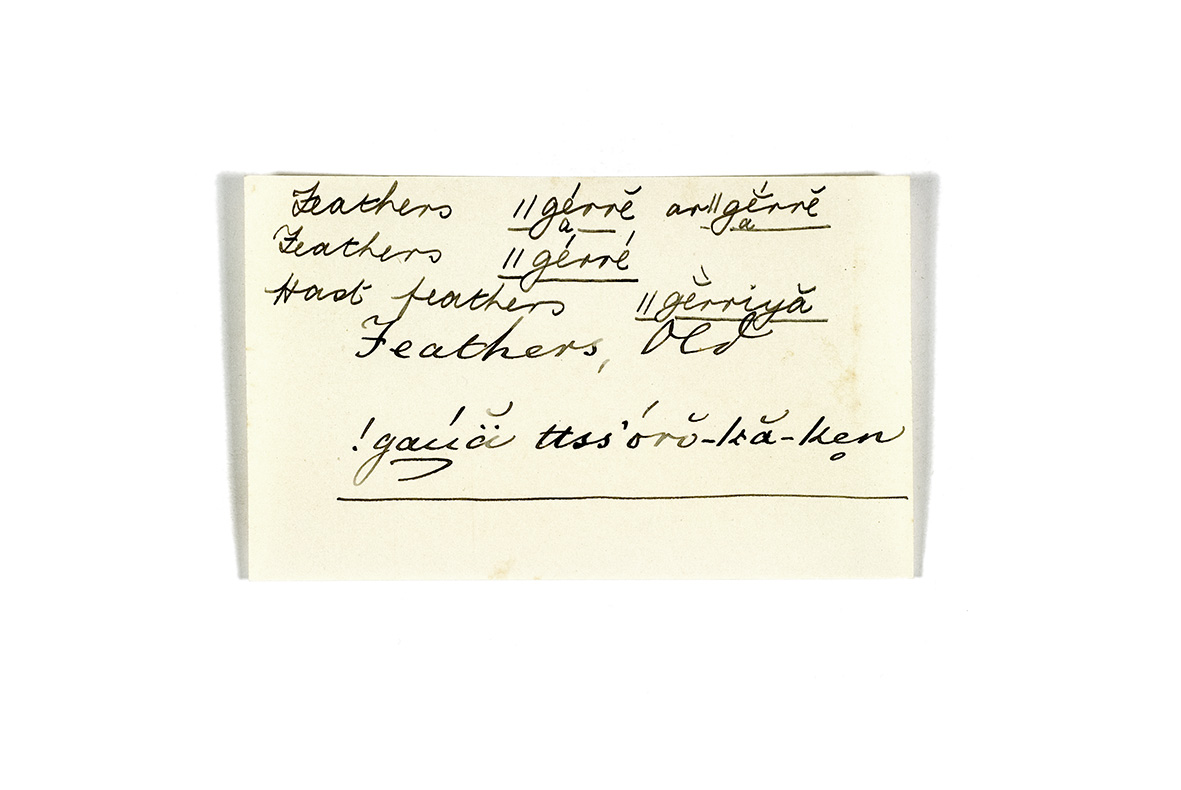 Feathers ǁgérrĕ or ǁgĕ́rrĕ
Feathers ǁgérré
Hast feathers ǁgĕ̀rriyă
Feathers, Old
!gaúä̆ ttss'órŏ-kă-ken̥